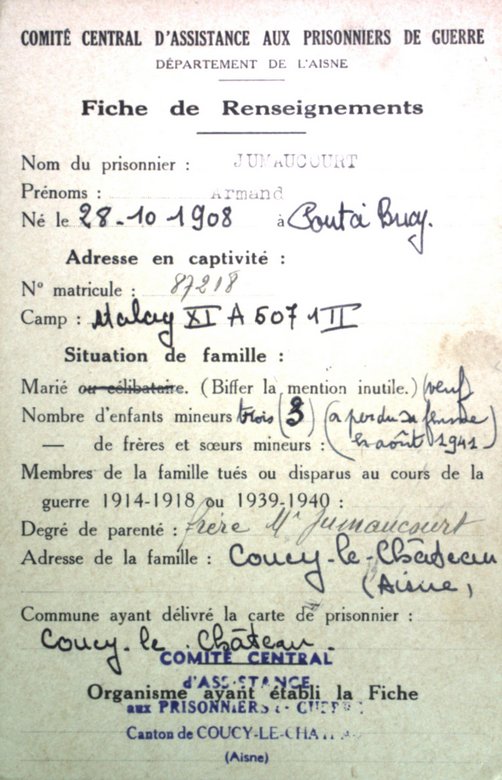 COMITÉ CENTRAL D'ASSISTANCE AUX PRISONNIERS DE GUERRE
DÉPARTEMENT DE L'AISNE
Fiche de Renseignements
Nom du prisonnier : JUMAUCOURT
Prénoms : Armand
Né le 28-10 1908 à Pont à Bucy.
Adresse en captivité :
N° matricule : 87218
Camp : Stalag XI A 507 1 II
Situation de famille :
Marié ou célibataire. (Biffer la mention inutile.) (veuf
Nombre d'enfants mineurs trois (3) (a perdu sa femme
— de frères et sœurs mineurs : en août 1941)
Membres de la famille tués ou disparus au cours de la
guerre 1914-1918 ou 1939-1940 :
Degré de parenté : frère Mr Jumaucourt
Adresse de la famille : Coucy-le-Château
(Aisne)
Commune ayant délivré la carte de prisonnier :
Coucy-le-Château.
COMITÉ CENTRAL
d'ASSISTANCE
Organisme ayant établi la Fiche
aux PRISONNIERS de GUERRE
Canton de COUCY-LE-CHATEAU
(Aisne)